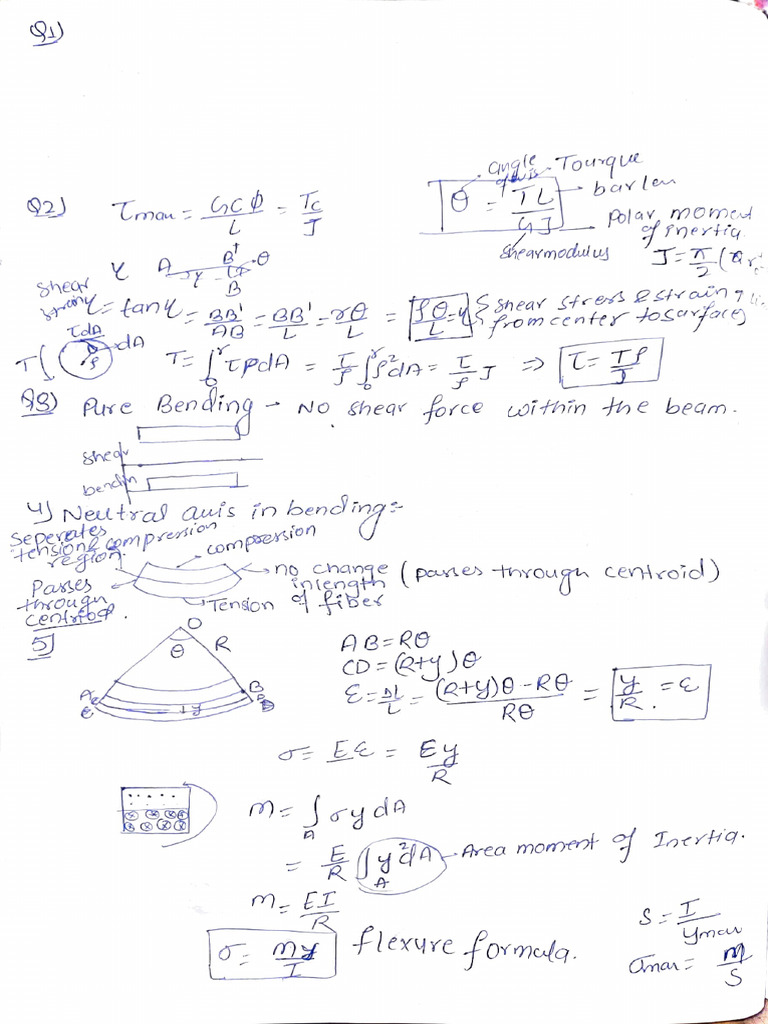 Q1)
Q2) τmax = GCΦ/L = Tc/J
θ = TL/GJ
angle of twis
Tourque
bar len
Polar moment of inertia
shear modulus
J = π/2 (
shear strain γ
A B' B γ θ
γ = tanγ = BB'/AB = BB'/L = rθ/L = ρθ/L = γ { shear stress & strain
from center to surface
τdA dA ρ
T
T = ∫₀ʳ τρdA = τ/ρ ∫₀ʳ ρ²dA = τ/ρ J ⇒ τ = Tρ/J
Q3) Pure Bending - No shear force within the beam.
shear
bendin
4) Neutral axis in bending:-
Seperates tension & compression region.
compression
no change in length of fiber (passes through centroid)
Passes through centriod.
Tension
5)
O
θ R
A B
C D
y
AB = Rθ
CD = (R+y)θ
ε = Δl/L = (R+y)θ - Rθ / Rθ = y/R = ε
σ = Eε = Ey/R
M = ∫A σy dA
= E/R ∫A y²dA - Area moment of Inertia.
M = EI/R
σ = My/I flexure formula.
S = I/ymax
σmax = M/S